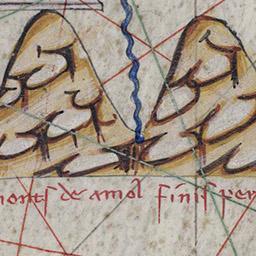 monts de amol finis per